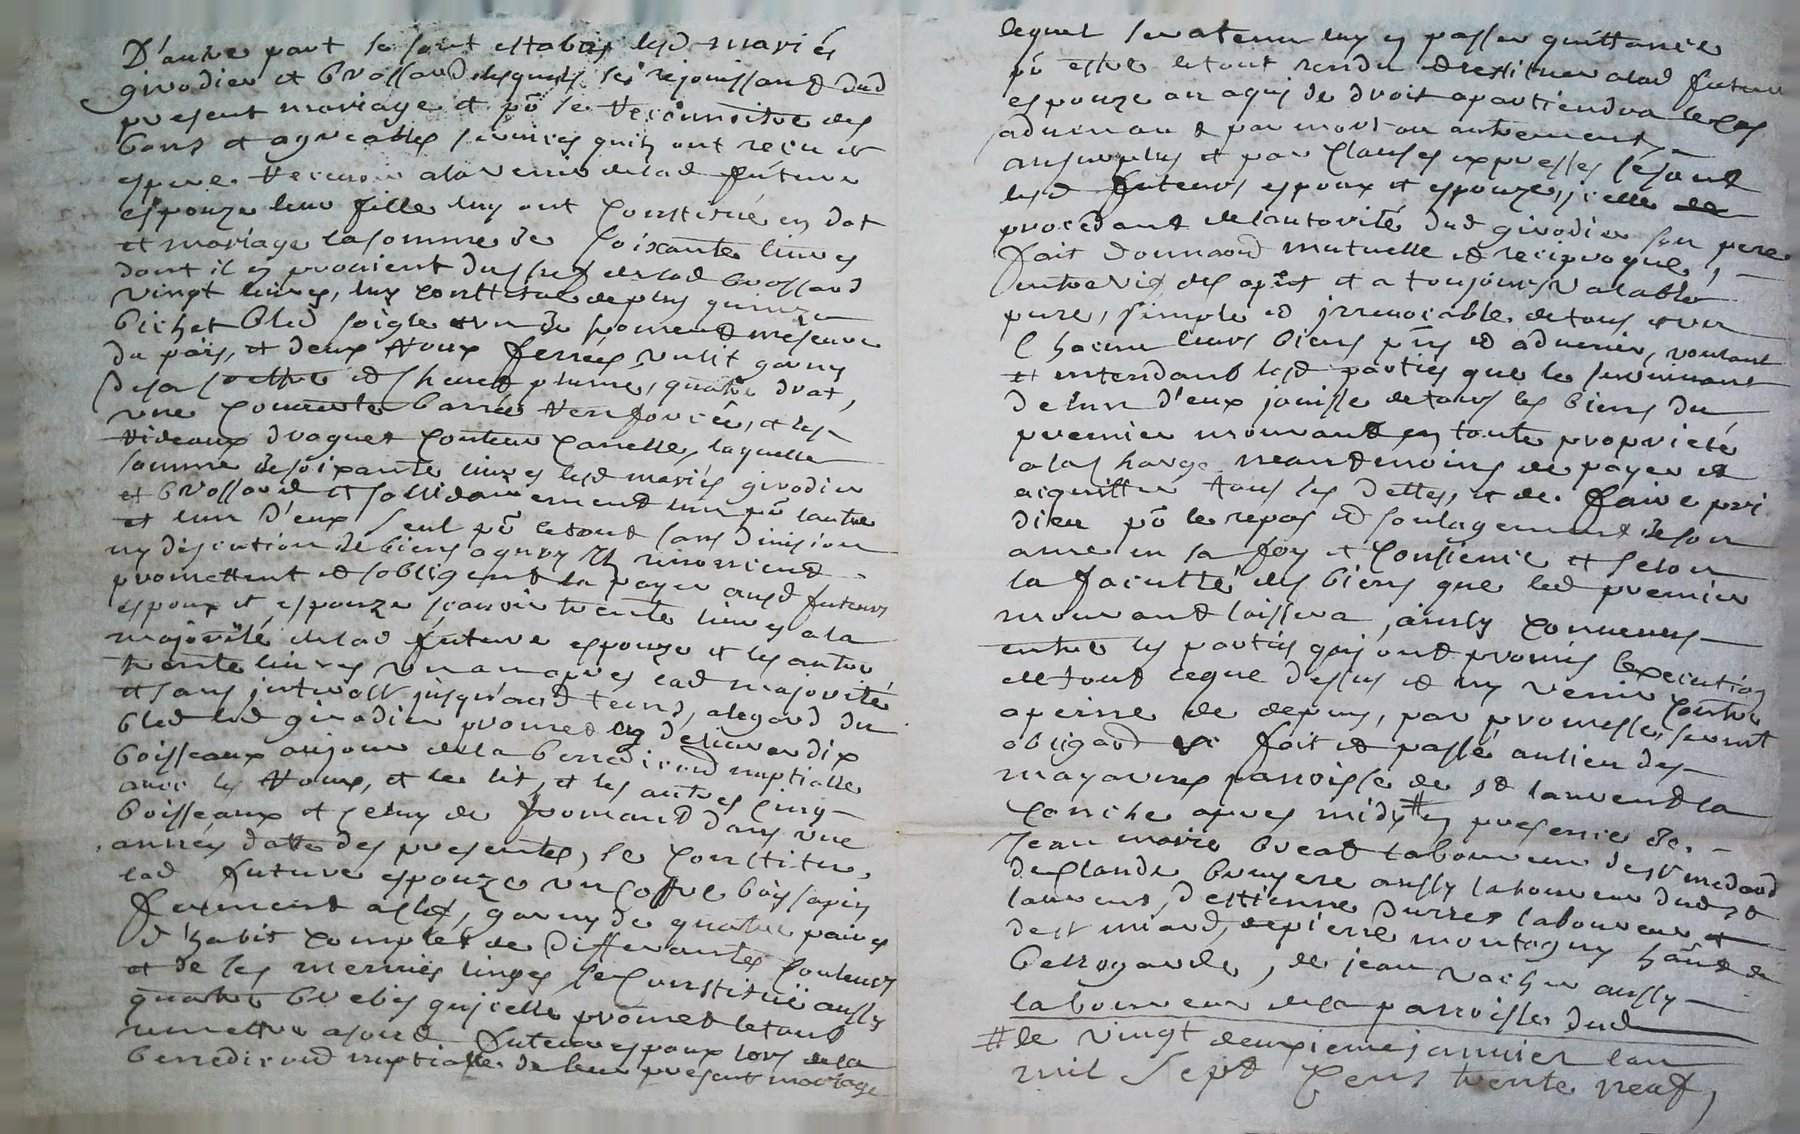 D'autre part se sont establis lesd mariés
girodier et brossard lesquels se rejouissant dud
present mariage et pō se reconnoitre des
bons et agreables services quils ont reçu et
espere recevoir alavenir delad future
espouze leur fille luy ont constitué en dot
et mariage lasomme de soixante livres
dont il en provient du chef delad brossard
vingt livres, luy constitue de plus quinze
bichet bled soigle et un de froment mesure
du païs, et deux ferrées, un lit garny
desa coettre et chevet plume, quatre drat,
une couverte barrée, et les
rideaux draquet couleur canelle, laquelle
somme de soixante livres lesd mariés girodier
et brossard et sollidairement lun pō lautre
et lun d'eux seul pō letout sans division
ny discution de biens aquoy ils renoncent
promettent et sobligent la payer ausd futurs
espoux et espouze scavoir trente livres a la
majorité delad future espouze et les autre
trente livres un an apres lad majorité
et sans jusqu'aud tems, alegard du
bled led girodier promet en delivrer dix
boisseaux aujour dela benediond nuptialle
avec les, et le lit, et les autres cinq
boisseaux et celuy de fromand dans une
année datte des presentes, se constitue
lad future espouze un coffre bois sapin
fermant a clef, garny de quatre paires
d'habit complet de differantes couleurs
et de ses menües linges se constituë aussy
quatre brebis qu'icelle promet letout
remettre asond futur espoux lors de la
benediond nuptialle de leur present mariage
lequel sera tenu luy en passer quittance
pō estre letout rendu et restitué alad future
espouze ou a qui de droit apartiendra le cas
advenant par mort ou autrement
ausurplus et par clauses expresses se sont
lesd futeurs espoux et espouze, icelle
procedant de lautorité dud girodier son pere
fait donnaond mutuelle et reciproque,
entrevifs des apñt et a toujours valable
pure, simple et irrevocable de tous et un
chacun leurs biens pñs et advenir, voulant
et entendant lesd parties que le survivant
de lun d'eux jouisse de tous les biens du
premier mourant en toute propriété
a la charge neantmoins de payer et
aiquitter tous les dettes, et de faire pri
dieu pō le repos et soulagement de son
ame en sa foy et consience et selon
la faculté des biens que led premier
mourant laissera, ainsy convenus
entre les parties qui ont promis lexecution
de tout ceque dessus et ny venir contre
apeine de depens, par promesse, serment
obligaond fait et passé au lieu des
mayaures parroisse de st laurent la
conche apres midy # en presence de
Jean marie breat laboureur de st medard
de claude bruyere aussy laboureur dud st
laurens, d'estienne durres laboureur
de st miard, de pierre montagny habt de
bellegarde, de jean vacher aussy
laboureur dela parroisse dud
# le vingt deuxieme janvier lan
mil sept cens trente neuf,